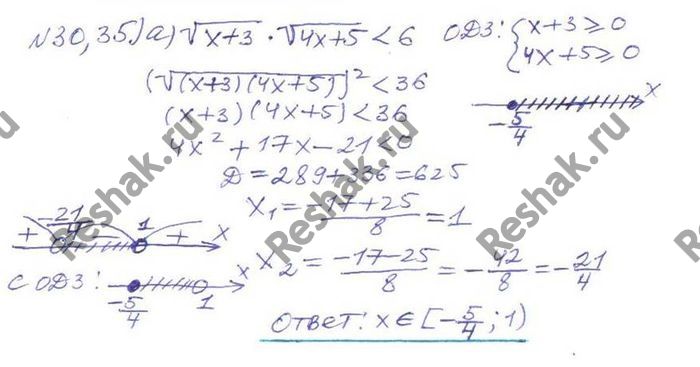 N30,35.) а) √(x+3) · √(4x+5) < 6 ОДЗ: { x+3 ≥ 0
4x+5 ≥ 0
(√((x+3)(4x+5)))² < 36
x
(x+3)(4x+5) < 36
-5/4
4x² + 17x - 21 < 0
Д = 289 + 336 = 625
x₁ = (-17+25)/8 = 1
-21/4 1
+ + x
x₂ = (-17-25)/8 = -42/8 = -21/4
с ОДЗ: x
-5/4 1
Ответ: x ∈ [-5/4; 1)
Reshak.ru
Reshak.ru
Reshak.ru
Reshak.ru